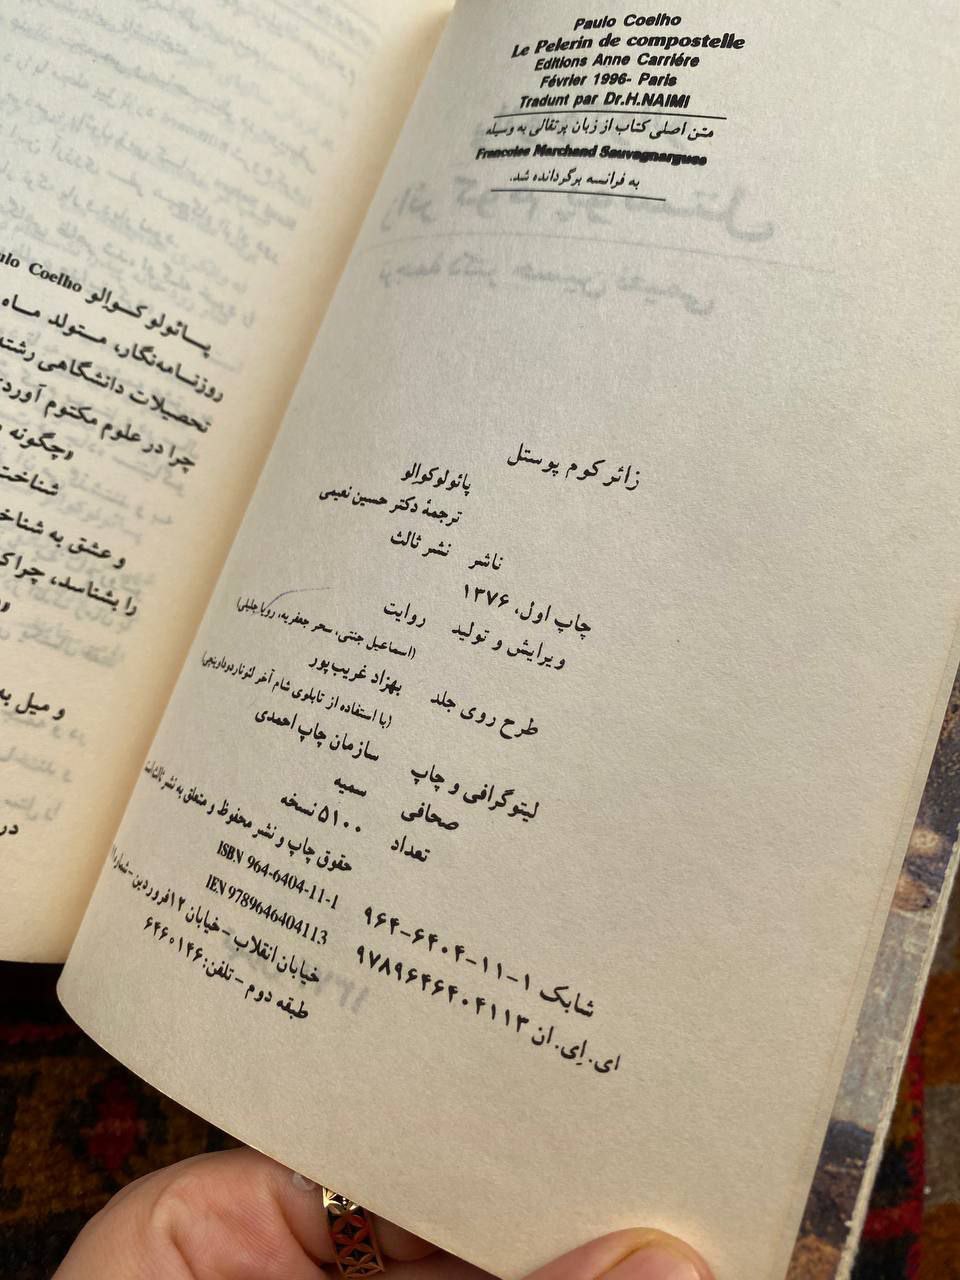 Paulo Coelho
Le Pelerin de compostelle
Editions Anne Carriére
Février 1996- Paris
Tradunt par Dr.H.NAIMI
متن اصلی کتاب از زبان پرتقالی به وسیله
Francoise Marchand Sauvagnargues
به فرانسه برگردانده شد.
زائر کوم پوستل
پائولوکوالو
ترجمهٔ دکتر حسین نعیمی
ناشر نشر ثالث
چاپ اول، ۱۳۷۶
ویرایش و تولید روایت
(اسماعیل جنتی، سحر جعفریه، رویا جلیلی)
طرح روی جلد بهزاد غریب‌پور
(با استفاده از تابلوی شام آخر لئوناردوداوینچی)
لیتوگرافی و چاپ سازمان چاپ احمدی
صحافی سمیه
تعداد ۵۱۰۰ نسخه
حقوق چاپ و نشر محفوظ و متعلق به نشر ثالث است
شابک ۱-۱۱-۶۴۰۴-۹۶۴ ISBN 964-6404-11-1
ای.اِی.ان ۹۷۸۹۶۴۶۴۰۴۱۱۳ IEN 9789646404113
خیابان انقلاب - خیابان ۱۲فروردین - شماره
طبقه دوم - تلفن: ۶۴۶۰۱۴۶
پائولو کوالو Coelho
روزنامه‌نگار، متولد ماه
تحصیلات دانشگاهی رشته
چرا در علوم مکتوم آورد
«چگونه
شناخت
و عشق به شناخ
را بشناسد، چراک
و میل به
در